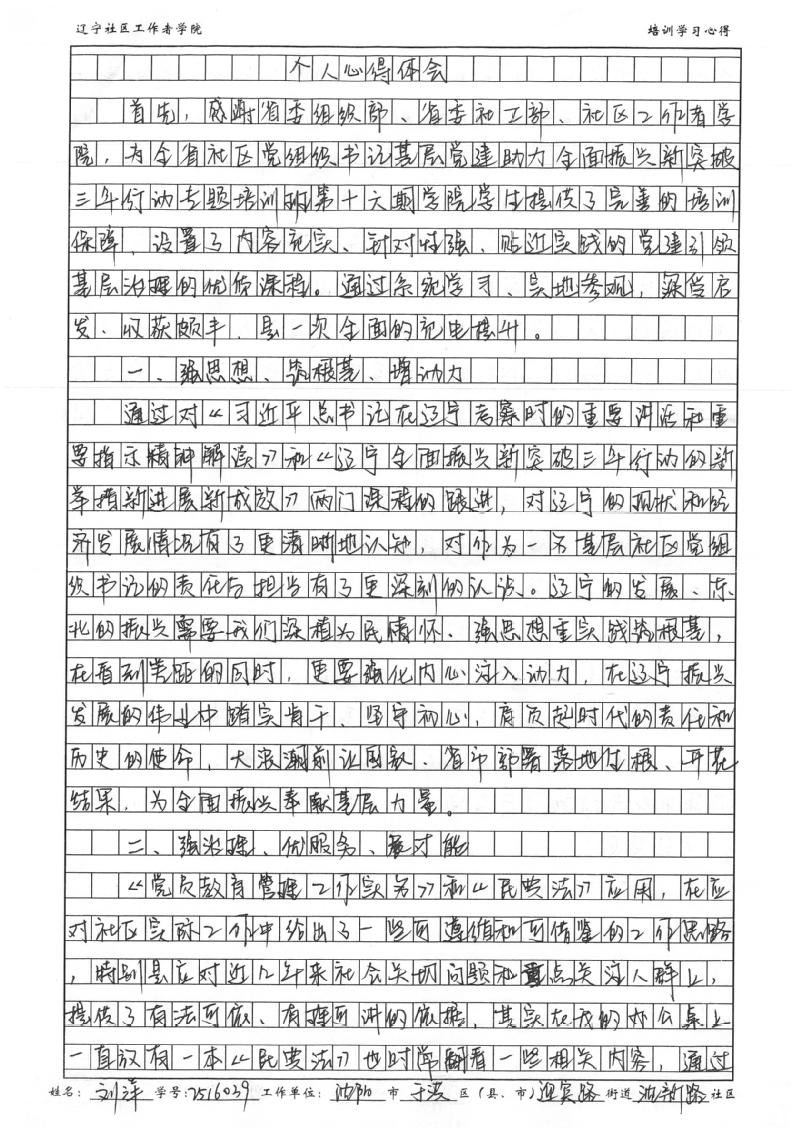 辽宁社区工作者学院 培训学习心得
个人心得体会
首先，感谢省委组织部、省委社工部、社区工作者学
院，为全省社区党组织书记基层党建助力全面振兴新突破
三年行动专题培训班第十六期学院学生提供了完善的培训
保障，设置了内容充实、针对性强、贴近实践的党建引领
基层治理的优质课程。通过系统学习、实地参观，深受启
发、收获颇丰，是一次全面的充电提升。
一、强思想、筑根基、增动力
通过对《习近平总书记在辽宁考察时的重要讲话和重
要指示精神解读》和《辽宁全面振兴新突破三年行动的新
举措新进展新成效》两门课程的跟进，对辽宁的现状和经
济发展情况有了更清晰地认知，对作为一名基层社区党组
织书记的责任与担当有了更深刻的认识。辽宁的发展、东
北的振兴需要我们深植为民情怀、强思想重实践筑根基，
在看到差距的同时，更要强化内心注入动力，在辽宁振兴
发展的伟业中踏实肯干、坚守初心，肩负起时代的责任和
历史的使命，大浪潮前让国家、省市部署落地生根、开花
结果，为全面振兴奉献基层力量。
二、强治理、优服务、展才能
《党员教育管理工作实务》和《民典法》应用，在应
对社区实际工作中给出了一些可遵循和可借鉴的工作思路
，特别是应对近几年来社会关切问题和重点关注人群上，
提供了有法可依、有理可讲的依据，其实在我的办公桌上
一直放有一本《民典法》也时常翻看一些相关内容，通过
姓名：刘洋 学号：2516039 工作单位：沈阳 市 于洪 区（县、市）迎宾路 街道 沈新路 社区